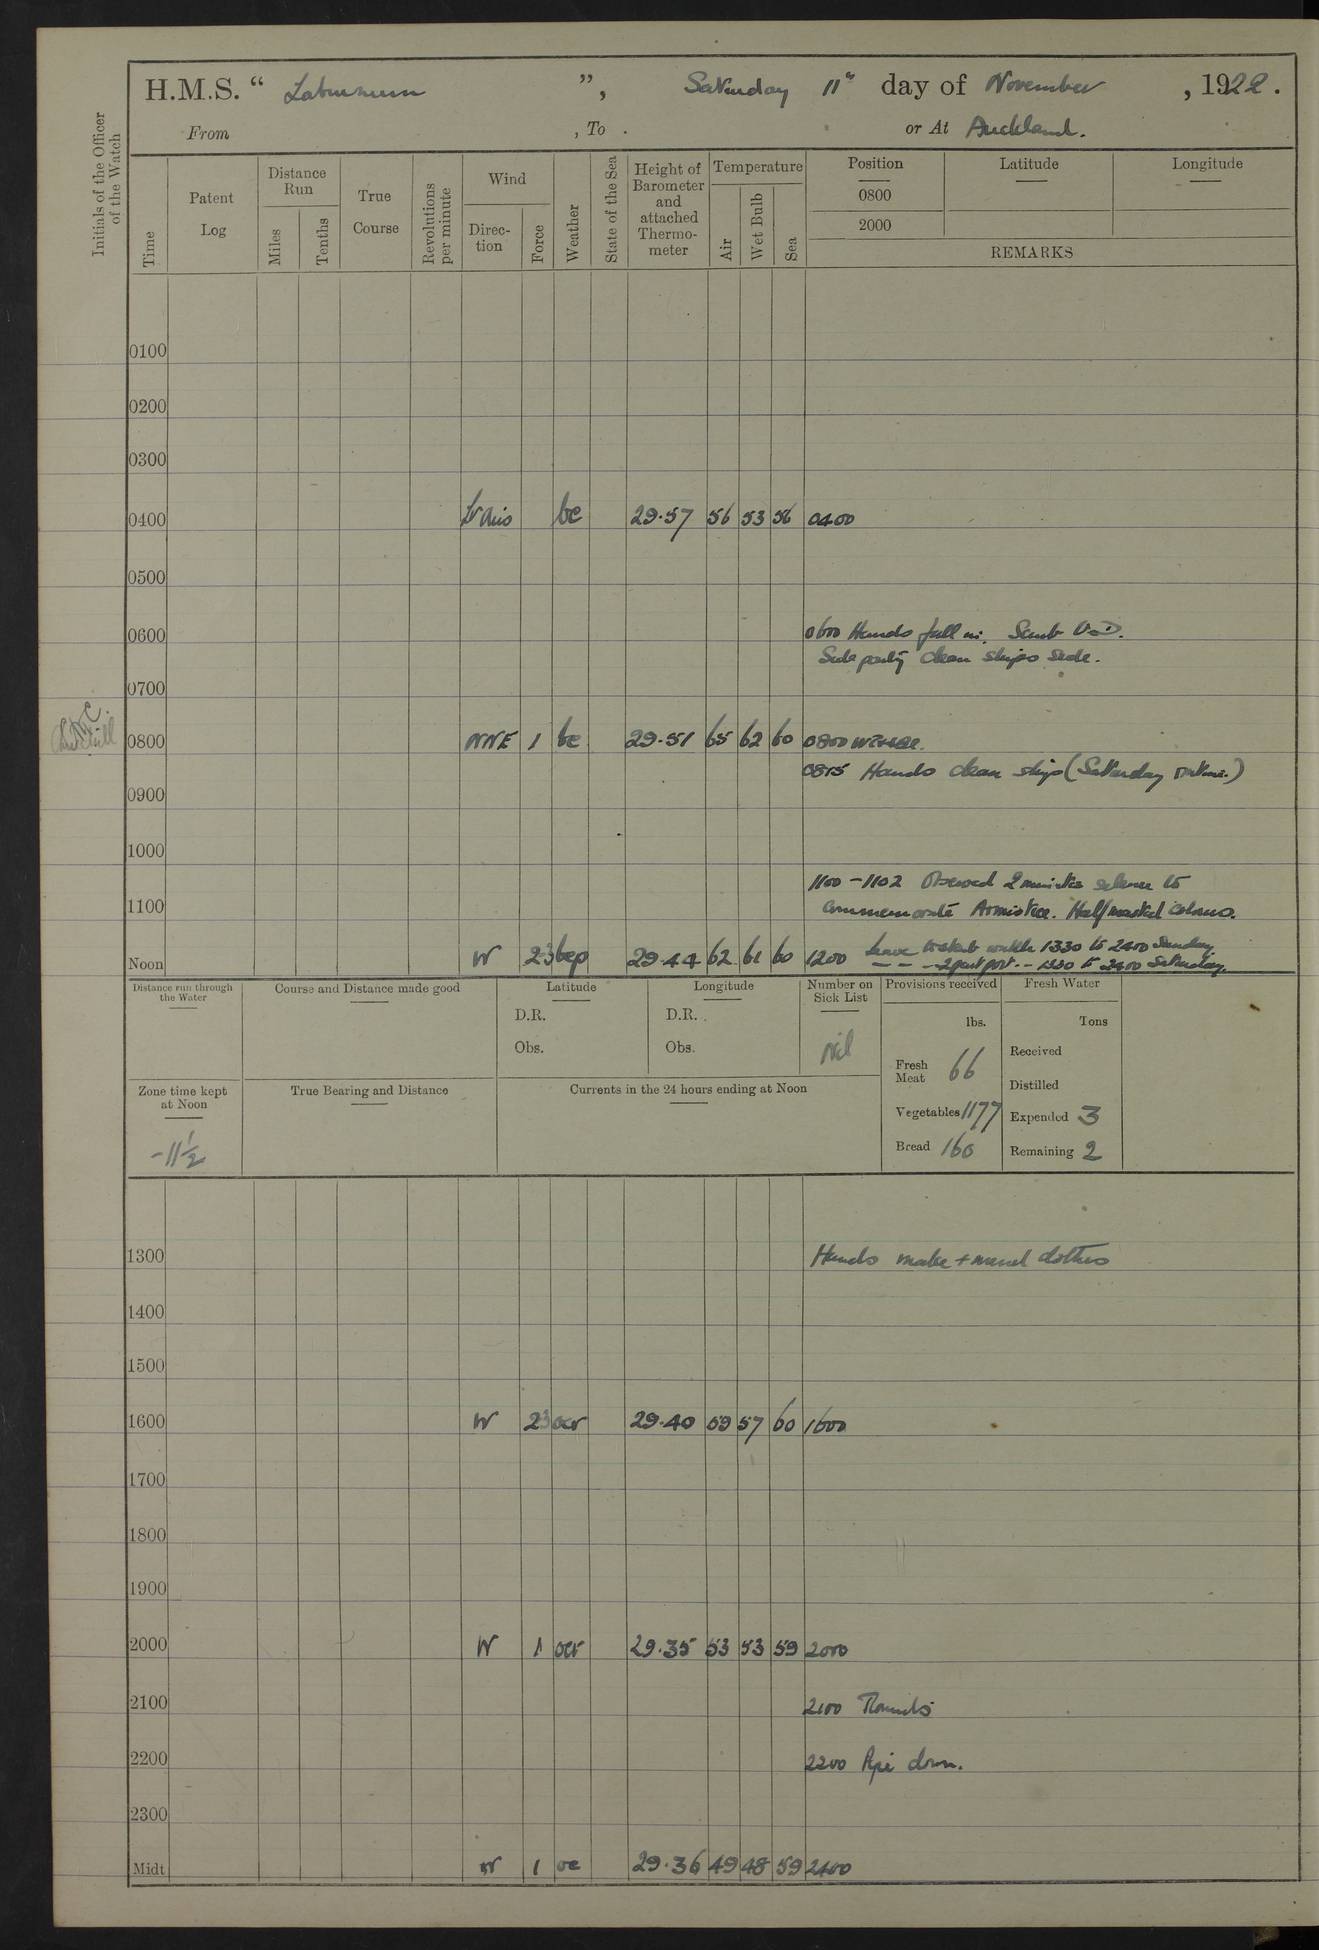 H.M.S. “ Laburnum ”, Saturday 11th day of November, 1922.
From , To . or At Auckland.
Initials of the Officer of the Watch
Time
Patent Log
Distance Run
Miles
Tenths
True Course
Revolutions per minute
Wind
Direc-tion
Force
Weather
State of the Sea
Height of Barometer and attached Thermo-meter
Temperature
Air
Wet Bulb
Sea
Position
0800
2000
Latitude
Longitude
REMARKS
0100
0200
0300
0400 Lt airs bc 29.57 56 53 56 0400
0500
0600 0600 Hands fall in. Scrub U.D.
Side party clean ships side.
0700
0800 NNE 1 bc 29.51 65 62 60 0800
0815 Hands clean ship (Saturday routine.)
0900
1000
1100 - 1102 Observed 2 minutes silence to
1100 commemorate Armistice. Half masted colours.
Noon W 23 bcp 29.44 62 61 60 1200 Leave to starb watch 1330 to 2400 Sunday.
— — — 2 part port -- 1330 to 2400 Saturday.
Distance run through the Water
Course and Distance made good
Latitude
D.R.
Obs.
Longitude
D.R.
Obs.
Number on Sick List
Nil
Provisions received
lbs.
Fresh Meat 66
Vegetables 1177
Bread 160
Fresh Water
Tons
Received
Distilled
Expended 3
Remaining 2
Zone time kept at Noon
-11½
True Bearing and Distance
Currents in the 24 hours ending at Noon
1300 Hands make + mend clothes
1400
1500
1600 W 23 ocr 29.40 59 57 60 1600
1700
1800
1900
2000 W 1 ocr 29.35 53 53 59 2000
2100 2100 Rounds
2200 2200 Pipe down.
2300
Midt W 1 oc 29.36 49 48 59 2400